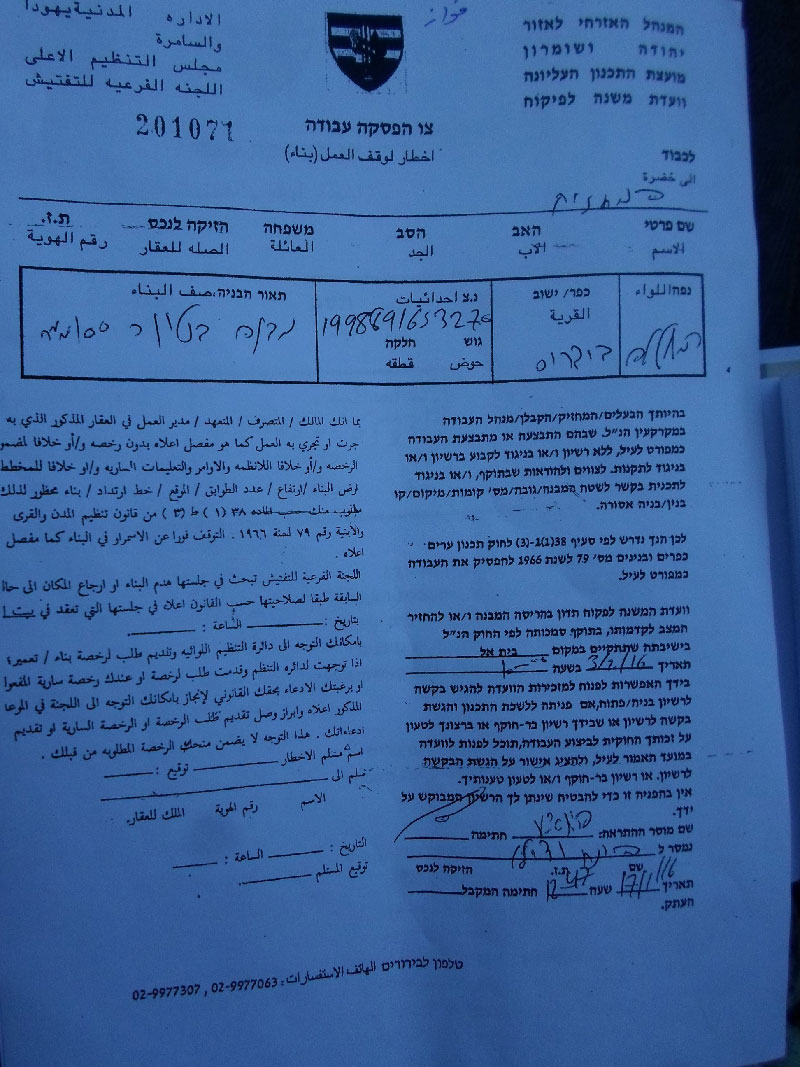 המנהל האזרחי לאזור
יהודה ושומרון
מועצת התכנון העליונה
וועדת משנה לפיקוח
الاداره المدنية يهودا
والسامرة
مجلس التنظيم الاعلى
اللجنه الفرعيه للتفتيش
فواز
201071
צו הפסקה עבודה
اخطار لوقف العمل (بناء)
לכבוד
الى خضرة
שם פרטי האב הסב משפחה הזיקה לנכס ת.ז.
الاسم الاب الجد العائلة الصله للعقار رقم الهوية
נפה/اللواء כפר/ ישוב נ.צ احداثيات תאור הבניה/صف البناء
القرية
גוש חלקה
حوض قطقه
בהיותך הבעלים/המחזיק/הקבלן/מנהל העבודה
במקרקעין הנ"ל. שבהם התבצעה או מתבצעת העבודה
כמפורט לעיל, ללא רשיון ו/או בניגוד לקבוע ברשיון ו/או
בניגוד לתקנות. לצווים ולהוראות שבתוקף, ו/או בניגוד
לתכנית בקשר לשטח המבנה/גובה/מס' קומות/מיקום/קו
בנין/בניה אסורה.
לכן הנך נדרש לפי סעיף 38(1)-(3) לחוק תכנון ערים
כפרים ובנינים מס' 79 לשנת 1966 להפסיק את העבודה
כמפורט לעיל.
וועדת המשנה לפקוח תדון בהריסה המבנה ו/או להחזיר
המצב לקדמותו, בתוקף סמכותה לפי החוק הנ"ל
בישיבתה שתתקיים במקום בית אל
תאריך 3/2/16 בשעה
בידך האפשרות לפנות למזכירות הוועדה להגיש בקשה
לרשיון בניה/פתוח, אם פניתה ללשכת התכנון והגשת
בקשה לרשיון או שבידך רשיון בר-חוקף או ברצונך לטעון
על זכותך החוקית לביצוע העבודה, תוכל לפנות לוועדה
במועד האמור לעיל, ולהציג אישור על הגשת הבקשה
לרשיון. או רשיון בר-חוקף ו/או לטעון טענותיך.
אין בהפניה זו כדי להבטיח שינתן לך הרשיון המבוקש על
ידך.
שם מוסר ההתראה: חתימה
נמסר ל
שם ת.ז. הזיקה לנכס
תאריך 17/1/16 שעה חתימה המקבל
העתק.
بما انك المالك / المتصرف / المتعهد / مدير العمل في العقار المذكور الذي به
جرت او تجري به العمل كما هو مفصل اعلاه بدون رخصه و/أو خلافا لمضمو
الرخصه و/أو خلافا للانظمه والاوامر والتعليمات الساريه و/او خلافا للمخطط
لرض البناء /ارتفاع / عدد الطوابق / الموقع / خط ارتداد / بناء محظور لذلك
مطلوب منك حسب الماده ٣٨ (١) ط (٣) من قانون تنظيم المدن والقرى
والابنية رقم ٧٩ لسنة ١٩٦٦ . التوقف فورا عن الاسمرار في البناء كما مفصل
اعلاه .
اللجنة الفرعية للتفتيش تبحث في جلستها هدم البناء او ارجاع المكان الى حالا
السابقة طبقا لصلاحيتها حسب القانون اعلان في جلستها التي تعقد في
بتاريخ : الساعة :
بامكانك التوجه الى دائرة التنظيم اللوائيه وتقديم طلب لرخصة بناء / تعمير؛
اذا توجهت لدائره التنظم وقدمت طلب لرخصة او عندك رخصة سارية المفعوا
او برغبتك الادعاء بحقك القانوني لإنجاز بامكانك التوجه الى اللجنة في الموعا
المذكور اعلاه وابراز وصل تقديم طلب الرخصة او الرخصة السارية او تقديم
ادعاءاتك . هذا التوجه لا يضمن منحك الرخصة المطلوبه من قبلك .
اسم مسلم الاخطار توقيع :
سلم الى
الاسم رقم الهوية الملك للعقار.
التاريخ : الساعة :
توقيع المستلم
טלפון לבירורים الهاتف الاستفسارات : 02-9977063 , 02-9977307